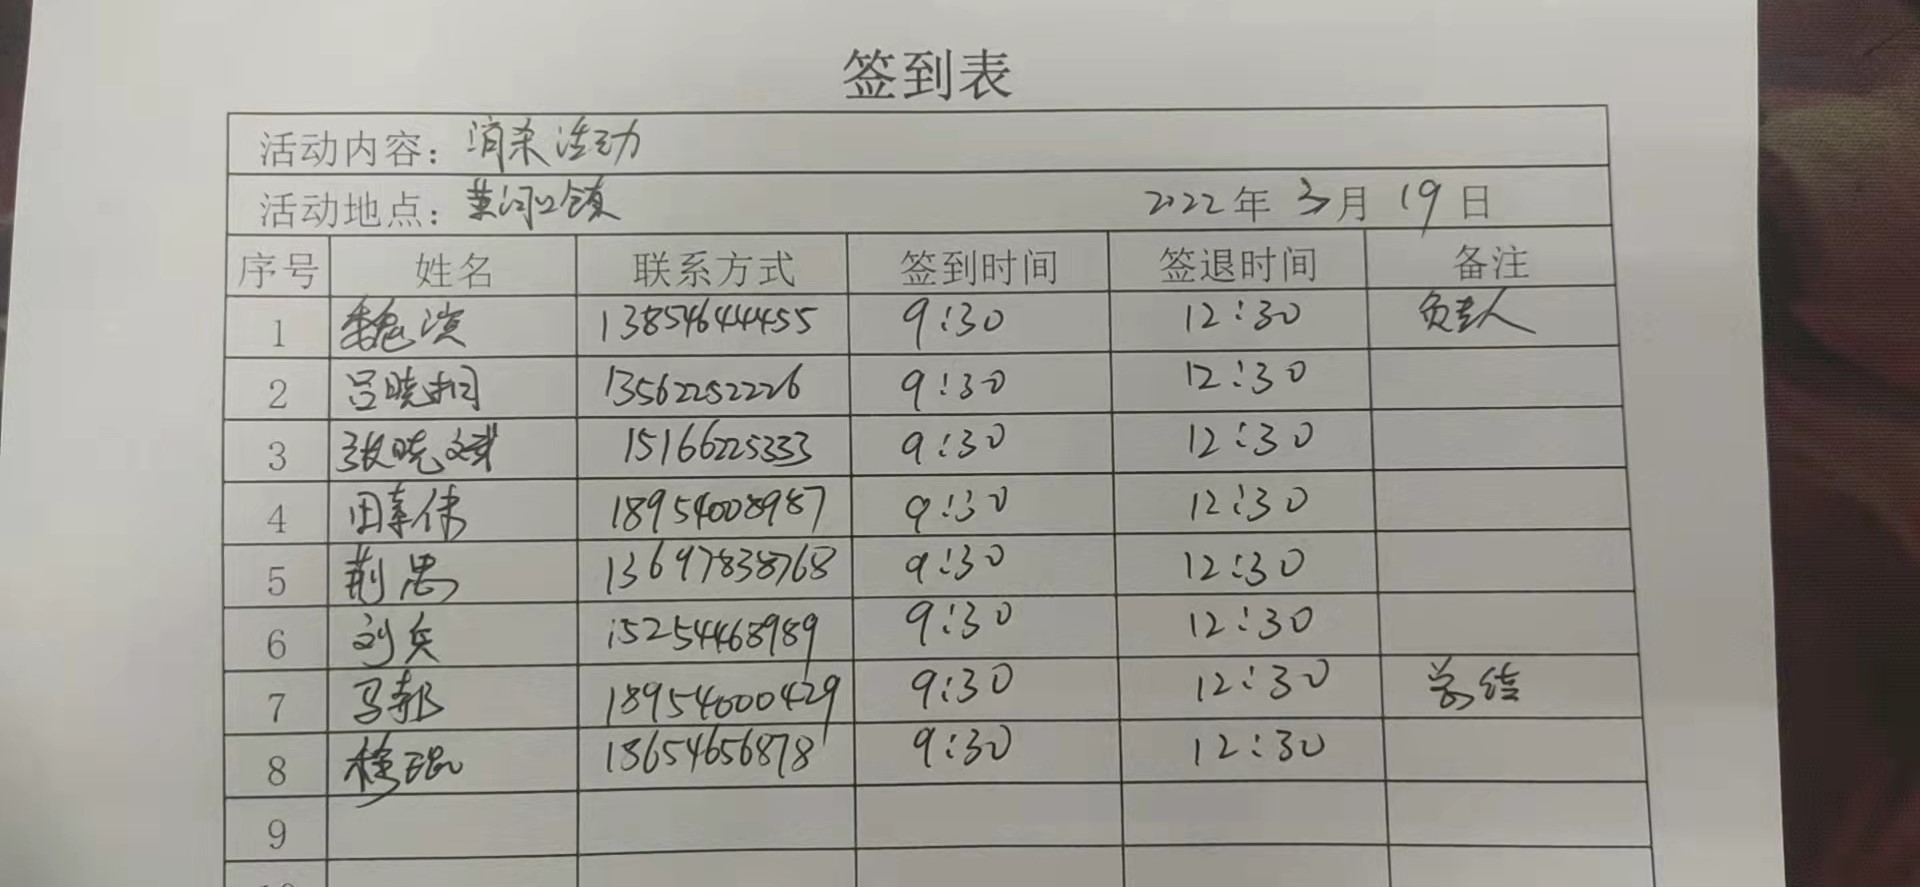 签到表
活动内容：消杀活动
活动地点：黄河口镇 2022年 3月 19日
序号 姓名 联系方式 签到时间 签退时间 备注
1 魏滨 13854644455 9:30 12:30 负责人
2 吕晓桐 13562252226 9:30 12:30
3 张晓斌 15166225333 9:30 12:30
4 田 伟 18954008987 9:30 12:30
5 荆忠 13697838768 9:30 12:30
6 刘兵 15254468989 9:30 12:30
7 马 18954000429 9:30 12:30 总结
8 18654656878 9:30 12:30
9